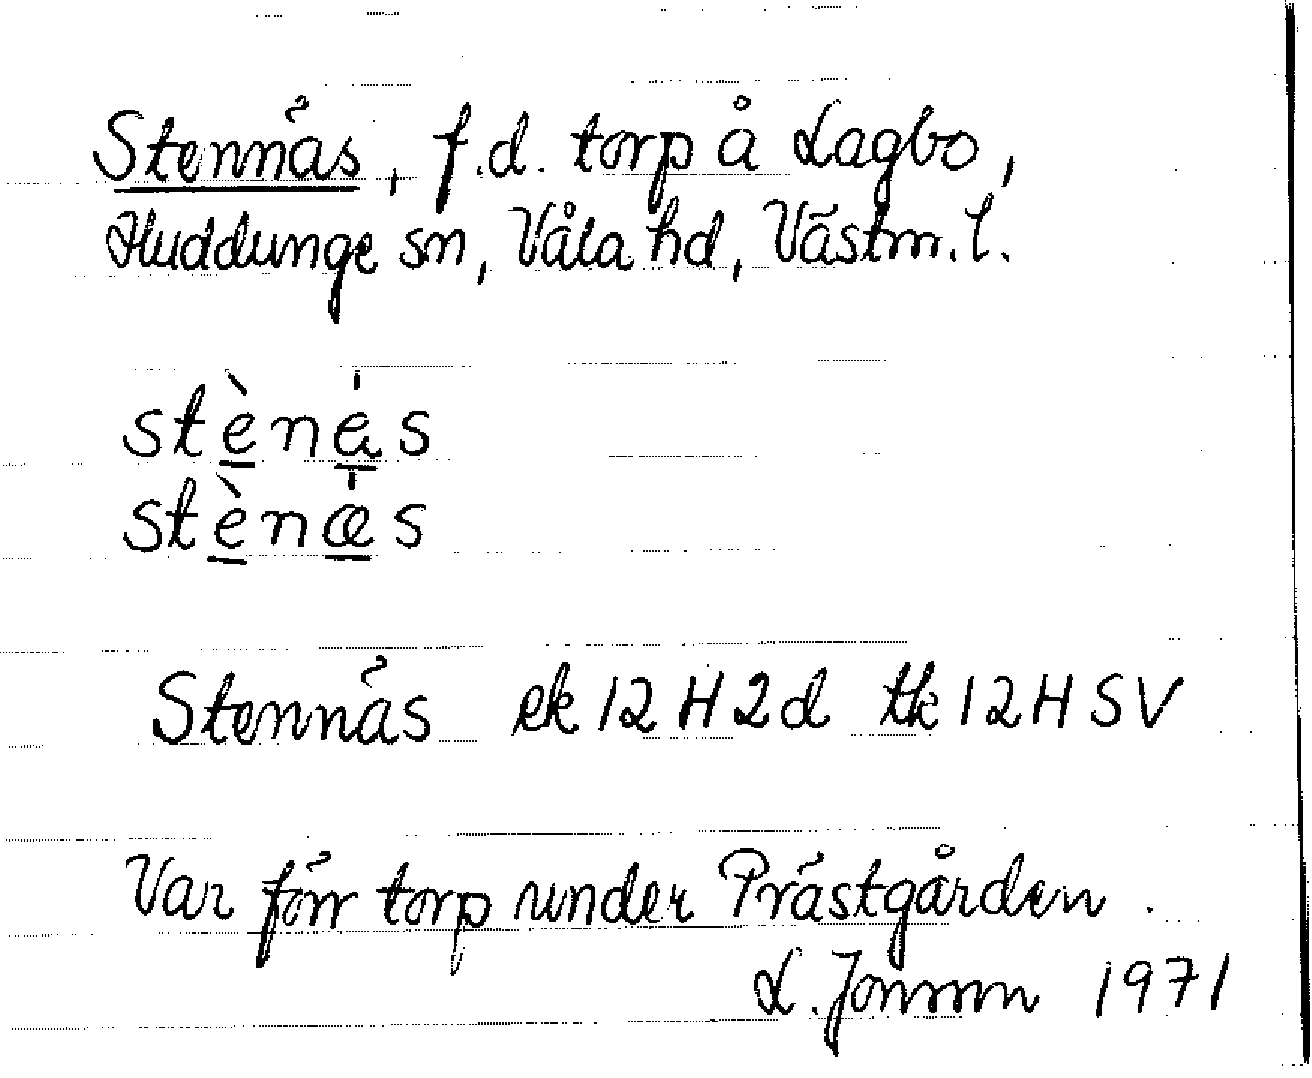 Stennäs, f.d. torp å Lagbo,
Huddunge sn, Våla hd, Västm. l.
stènás
stènæ̍s
Stennäs ek 12H2d tk 12HSV
Var förr torp under Prästgården.
L. Jonsson 1971